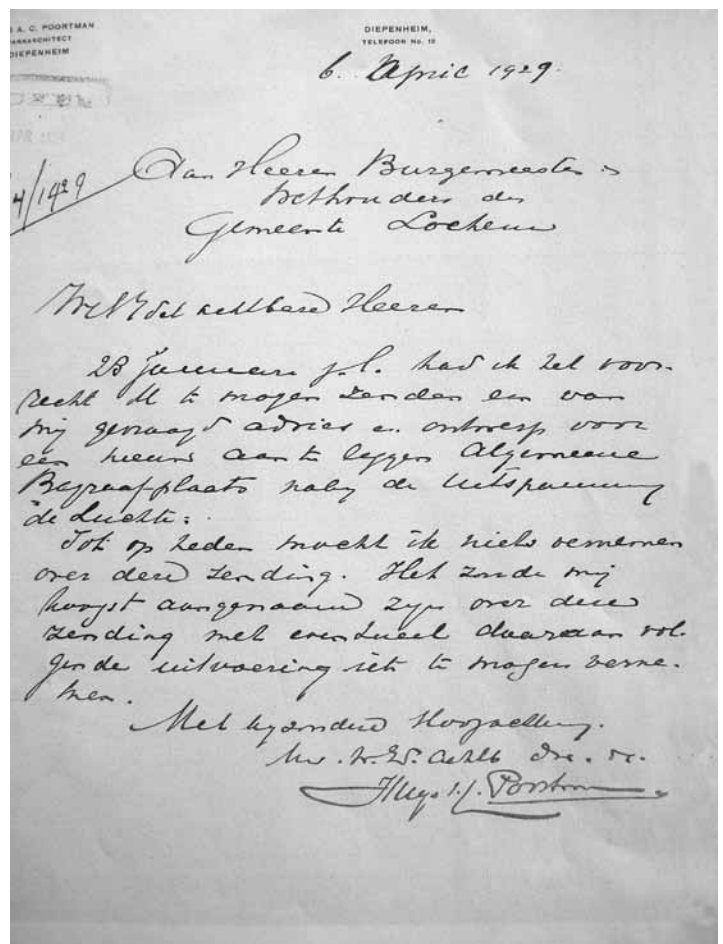 A. C. POORTMAN
DIEPENHEIM
DIEPENHEIM,
TELEFOON No. 12
6. April 1929.
4/1929
Aan Heeren Burgemeester &
Wethouders der
Gemeente Lochem
WelEdelachtbare Heeren
23 Januari j.l. had ik het voor-
recht U te mogen zenden een van
mij gevraagd advies en ontwerp voor
een nieuw aan te leggen Algemeene
Begraafplaats nabij de Uitspanning
"de Luchte".
Tot op heden mocht ik niets vernemen
over deze zending. Het zoude mij
hoogst aangenaam zijn over deze
zending met eventueel daaraan vol-
gende uitvoering iets te mogen verne-
men.
Met byzondere Hoogachting.
Uw. W. Ed. Achtb. dw. dr.
Hugo Poortman